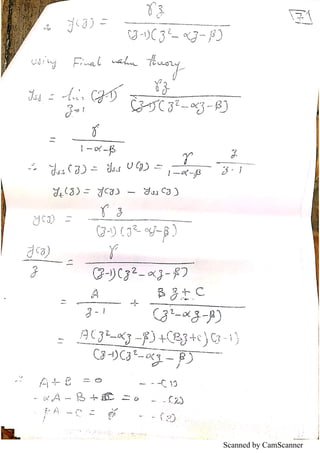 7
∴ y(z) = γz / (z-1)(z² - αz - β)
using Final value theory
yss = lim z→1 (z-1) γz / (z-1)(z² - αz - β)
= γ / 1-α-β
∴ yss(z) = yss U(z) = γ / 1-α-β z / z-1
yt(z) = y(z) - yss(z)
y(z) = γ z / (z-1)(z² - αz - β)
y(z) / z = γ / (z-1)(z² - αz - β)
= A / z-1 + Bz + C / (z² - αz - β)
= A(z² - αz - β) + (Bz + c)(z-1) / (z-1)(z² - αz - β)
∴ A + B = 0 - - - (1)
- αA - B + C = 0 - - (2)
A - C = - - (2)
Scanned by CamScanner